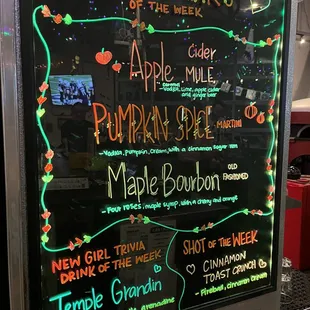 OF THE WEEK
Apple Cider
MULE
Vodka, lime, apple cider
and ginger beer
PUMPKIN SPICE MARTINI
-Vodka, Pumpkin, Cream, with a cinnamon sugar rim
Maple Bourbon OLD
FASHIONED
- Four roses, maple syrup, with a cherry and orange
NEW GIRL TRIVIA
DRINK OF THE WEEK
Temple Grandin
grenadine
SHOT OF THE WEEK
CINNAMON
TOAST CRUNCH
- Fireball, cinnamon cream